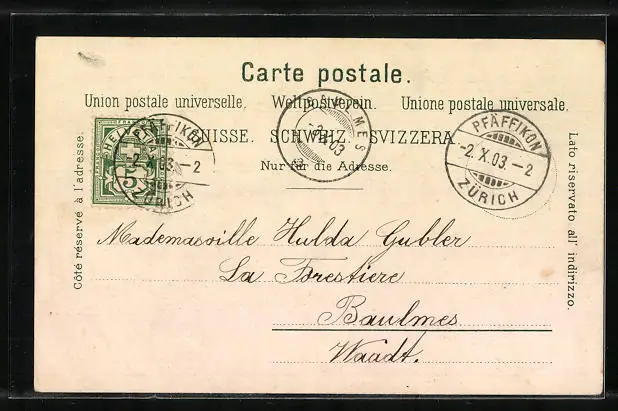 Carte postale.
Union postale universelle. Weltpostverein. Unione postale universale.
SUISSE. SCHWEIZ. SVIZZERA.
Nur für die Adresse.
Côté réservé à l'adresse.
Lato riservato all' indirizzo.
HELVETIA
5
PFÄFFIKON
-2. X. 03. -2
ZÜRICH
BAULMES
03
PFÄFFIKON
-2. X. 03. -2
ZÜRICH
Mademoiselle Hulda Gubler
La Forestiere
Baulmes
Waadt.